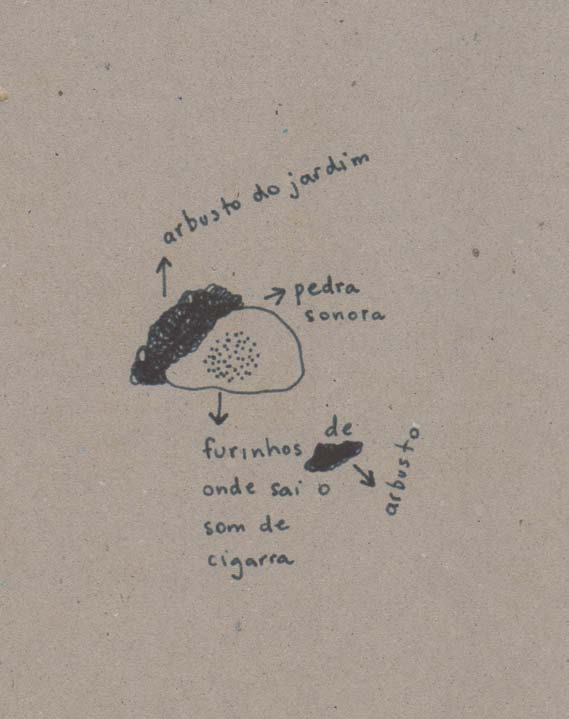 arbusto do jardim
pedra
sonora
de
furinhos
arbusto
onde sai o
som de
cigarra